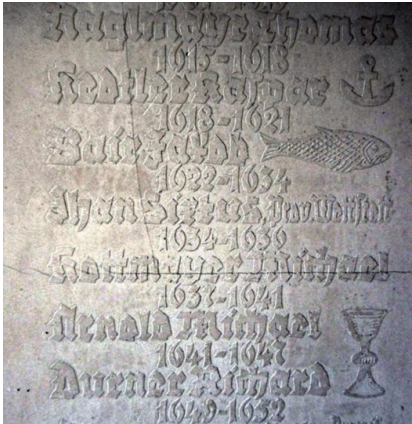 Naglmayr Thomas
1615-1618
Kedtler Kaspar
1618-1621
Bair Jakob
1622-1634
Jhan Sixtus, Prov. Weltstett
1934-1939
Kottmayer Michael
1937-1941
Arnold Michael
1941-1947
Durner Richard
1949-1952